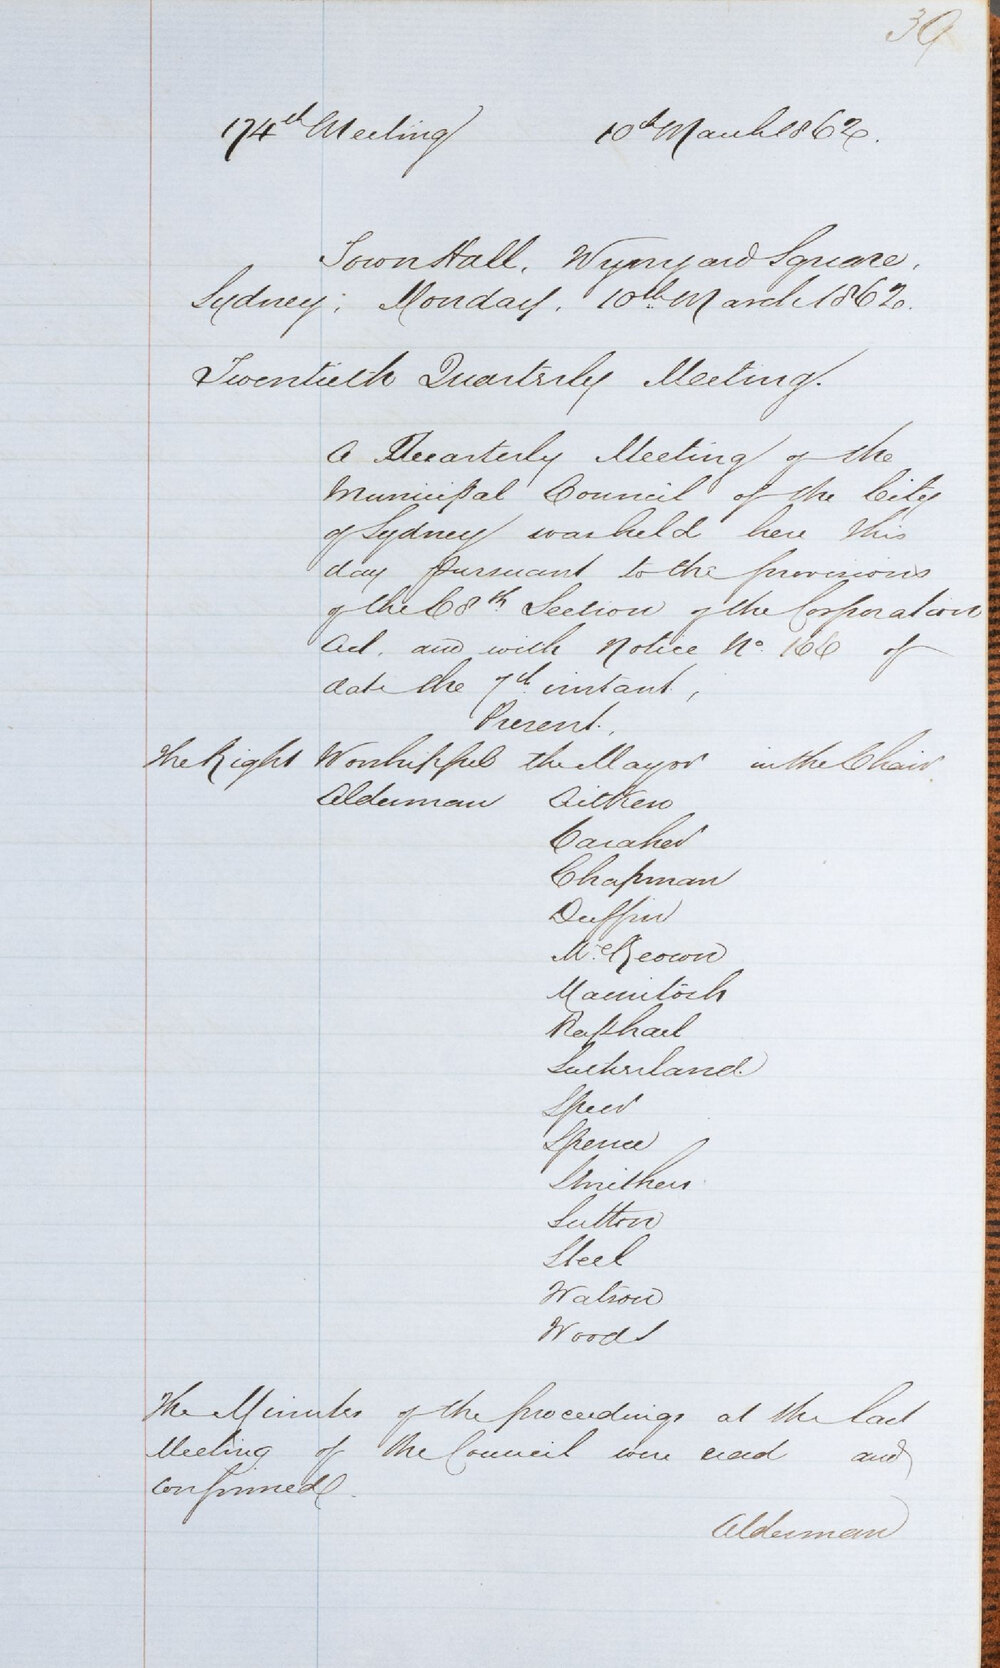 39
174th Meeting 10th March 1862.
Town Hall, Wynyard Square,
Sydney; Monday, 10th March 1862.
Twentieth Quarterly Meeting.
A Quarterly Meeting of the
Municipal Council of the City
of Sydney was held here this
day pursuant to the provisions
of the 68th Section of the Corporation
Act, and with Notice No. 166 of
date the 7th instant,
Present,
The Right Worshipful the Mayor in the Chair
Alderman Aitken
Caraher
Chapman
Duffin
McKeown
Macintosh
Raphael
Sutherland
Speer
Spence
Smithers
Sutton
Steel
Watson
Woods
The Minutes of the proceedings at the last
Meeting of the Council were read and
confirmed.
Alderman